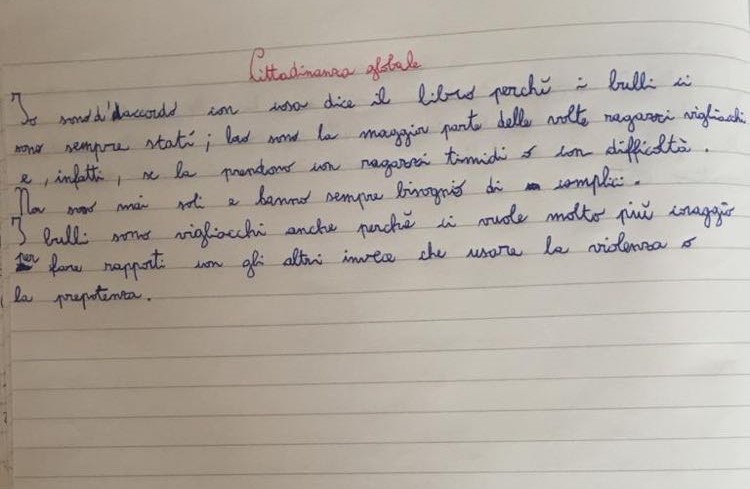 Cittadinanza globale
Io sono d'daccordo con cosa dice il libro perchè i bulli ci
sono sempre stati; loro sono la maggior parte delle volte ragazzi vigliacchi
e, infatti, se la prendono con ragazzi timidi o con difficoltà.
Ma sono mai soli e hanno sempre bisogno di complici.
I bulli sono vigliacchi anche perchè ci vuole molto più coraggio
per fare rapporti con gli altri invece che usare la violenza o
la prepotenza.